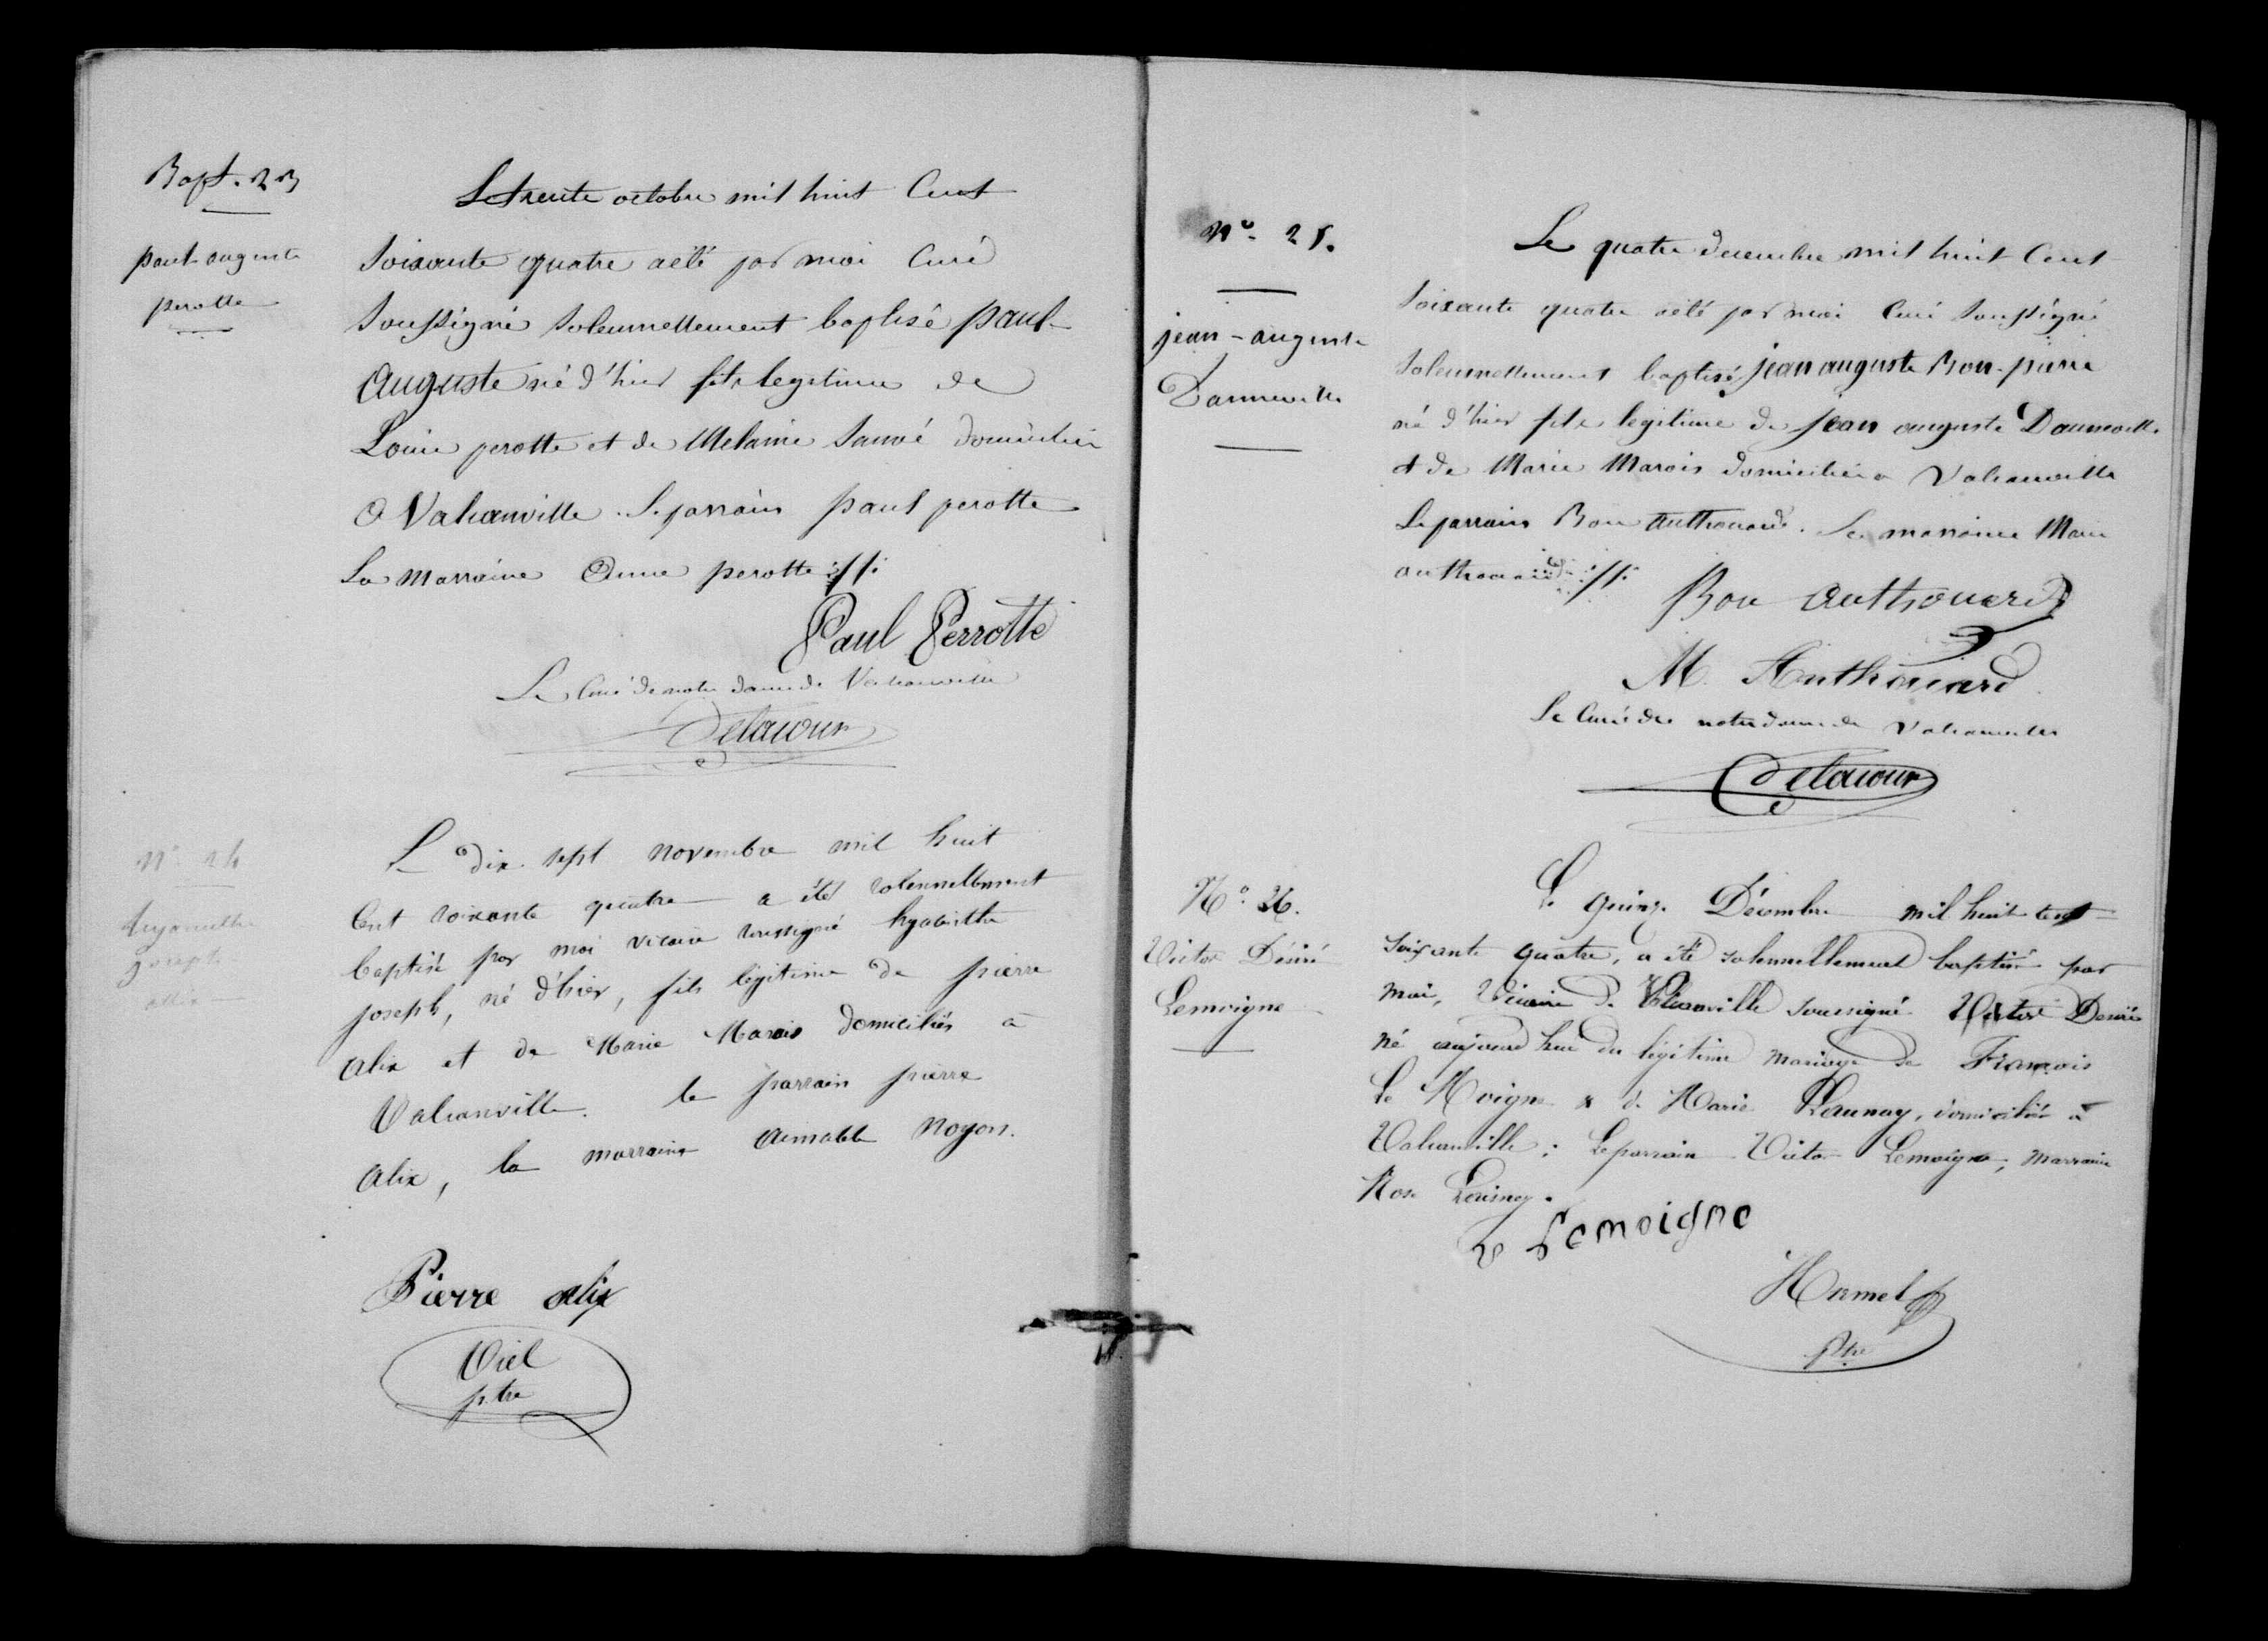 Bapt. 23
paul auguste
perotte
Le trente octobre mil huit Cent
Soixante quatre a été par moi Curé
Soussigné Solennellement baptisé paul-
Auguste né d'hier fils legitime de
Louis perotte et de Melanie Sauvé domiciliés
a Valcanville. Le parrain paul perotte
La Marraine Anne perotte
Paul Perrotte
Le Curé de notre dame de Valcanville
Delacour
N° 24
hyacinthe
joseph
alix
Le dix-sept novembre mil huit
Cent soixante quatre a été solennellement
baptisé par moi vicaire soussigné hyacinthe
joseph, né d'hier, fils légitime de pierre
alix et de Marie Marais domiciliés à
Valcanville. le parrain pierre
alix, la marraine aimable Noyon.
Pierre alix
Viel
ptre
N° 25.
jean-auguste
Danneville
Le quatre decembre mil huit Cent
Soixante quatre a été par moi Curé Soussigné
Solennellement baptisé jean auguste Bon-pierre
né d'hier fils legitime de jean auguste Danneville
et de Marie Marois domiciliés a Valcanville
Le parrain Bon Authouard. La marraine Marie
authouard
Bon Authouard
M. Anthouard
Le Curé de notre dame de Valcanville
Delacour
N° 26.
Victor Désiré
Lemoigne
Le quinze Décembre mil huit cent
soixante quatre, a été solennellement baptisé par
moi, Vicaire de Valcanville soussigné Victor Désiré
né aujourd'hui du légitime mariage de François
Le Moigne & de Marie Launay, domiciliés à
Valcanville; Le parrain Victor Lemoigne; marraine
Rose
V Lemoigne
Hamel
ptre